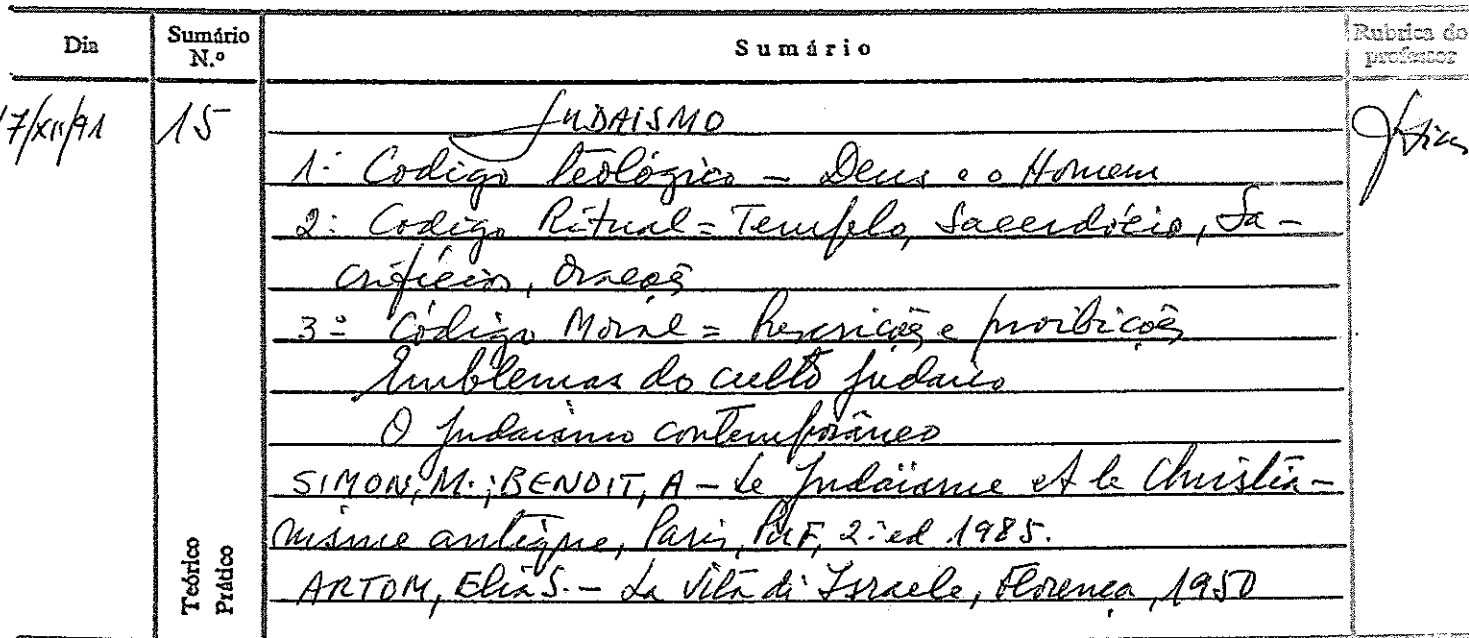 Dia
Sumário N.º
Sumário
Rubrica do professor
17/XII/91
15
JUDAISMO
1º Codigo teológico - Deus e o Homem
2º Codigo Ritual = Templo, Sacerdócio, Sa-
crifícios, Orações
3º Código Moral = Prescrições e proibições
Emblemas do culto judaico
O Judaismo contemporâneo
SIMON, M.; BENOIT, A - Le Judaïsme et le Christia-
nisme antique, Paris, PUF, 2ª ed. 1985.
ARTOM, Elia S. - La Vita di Israele, Florença, 1950
Teórico
Prático